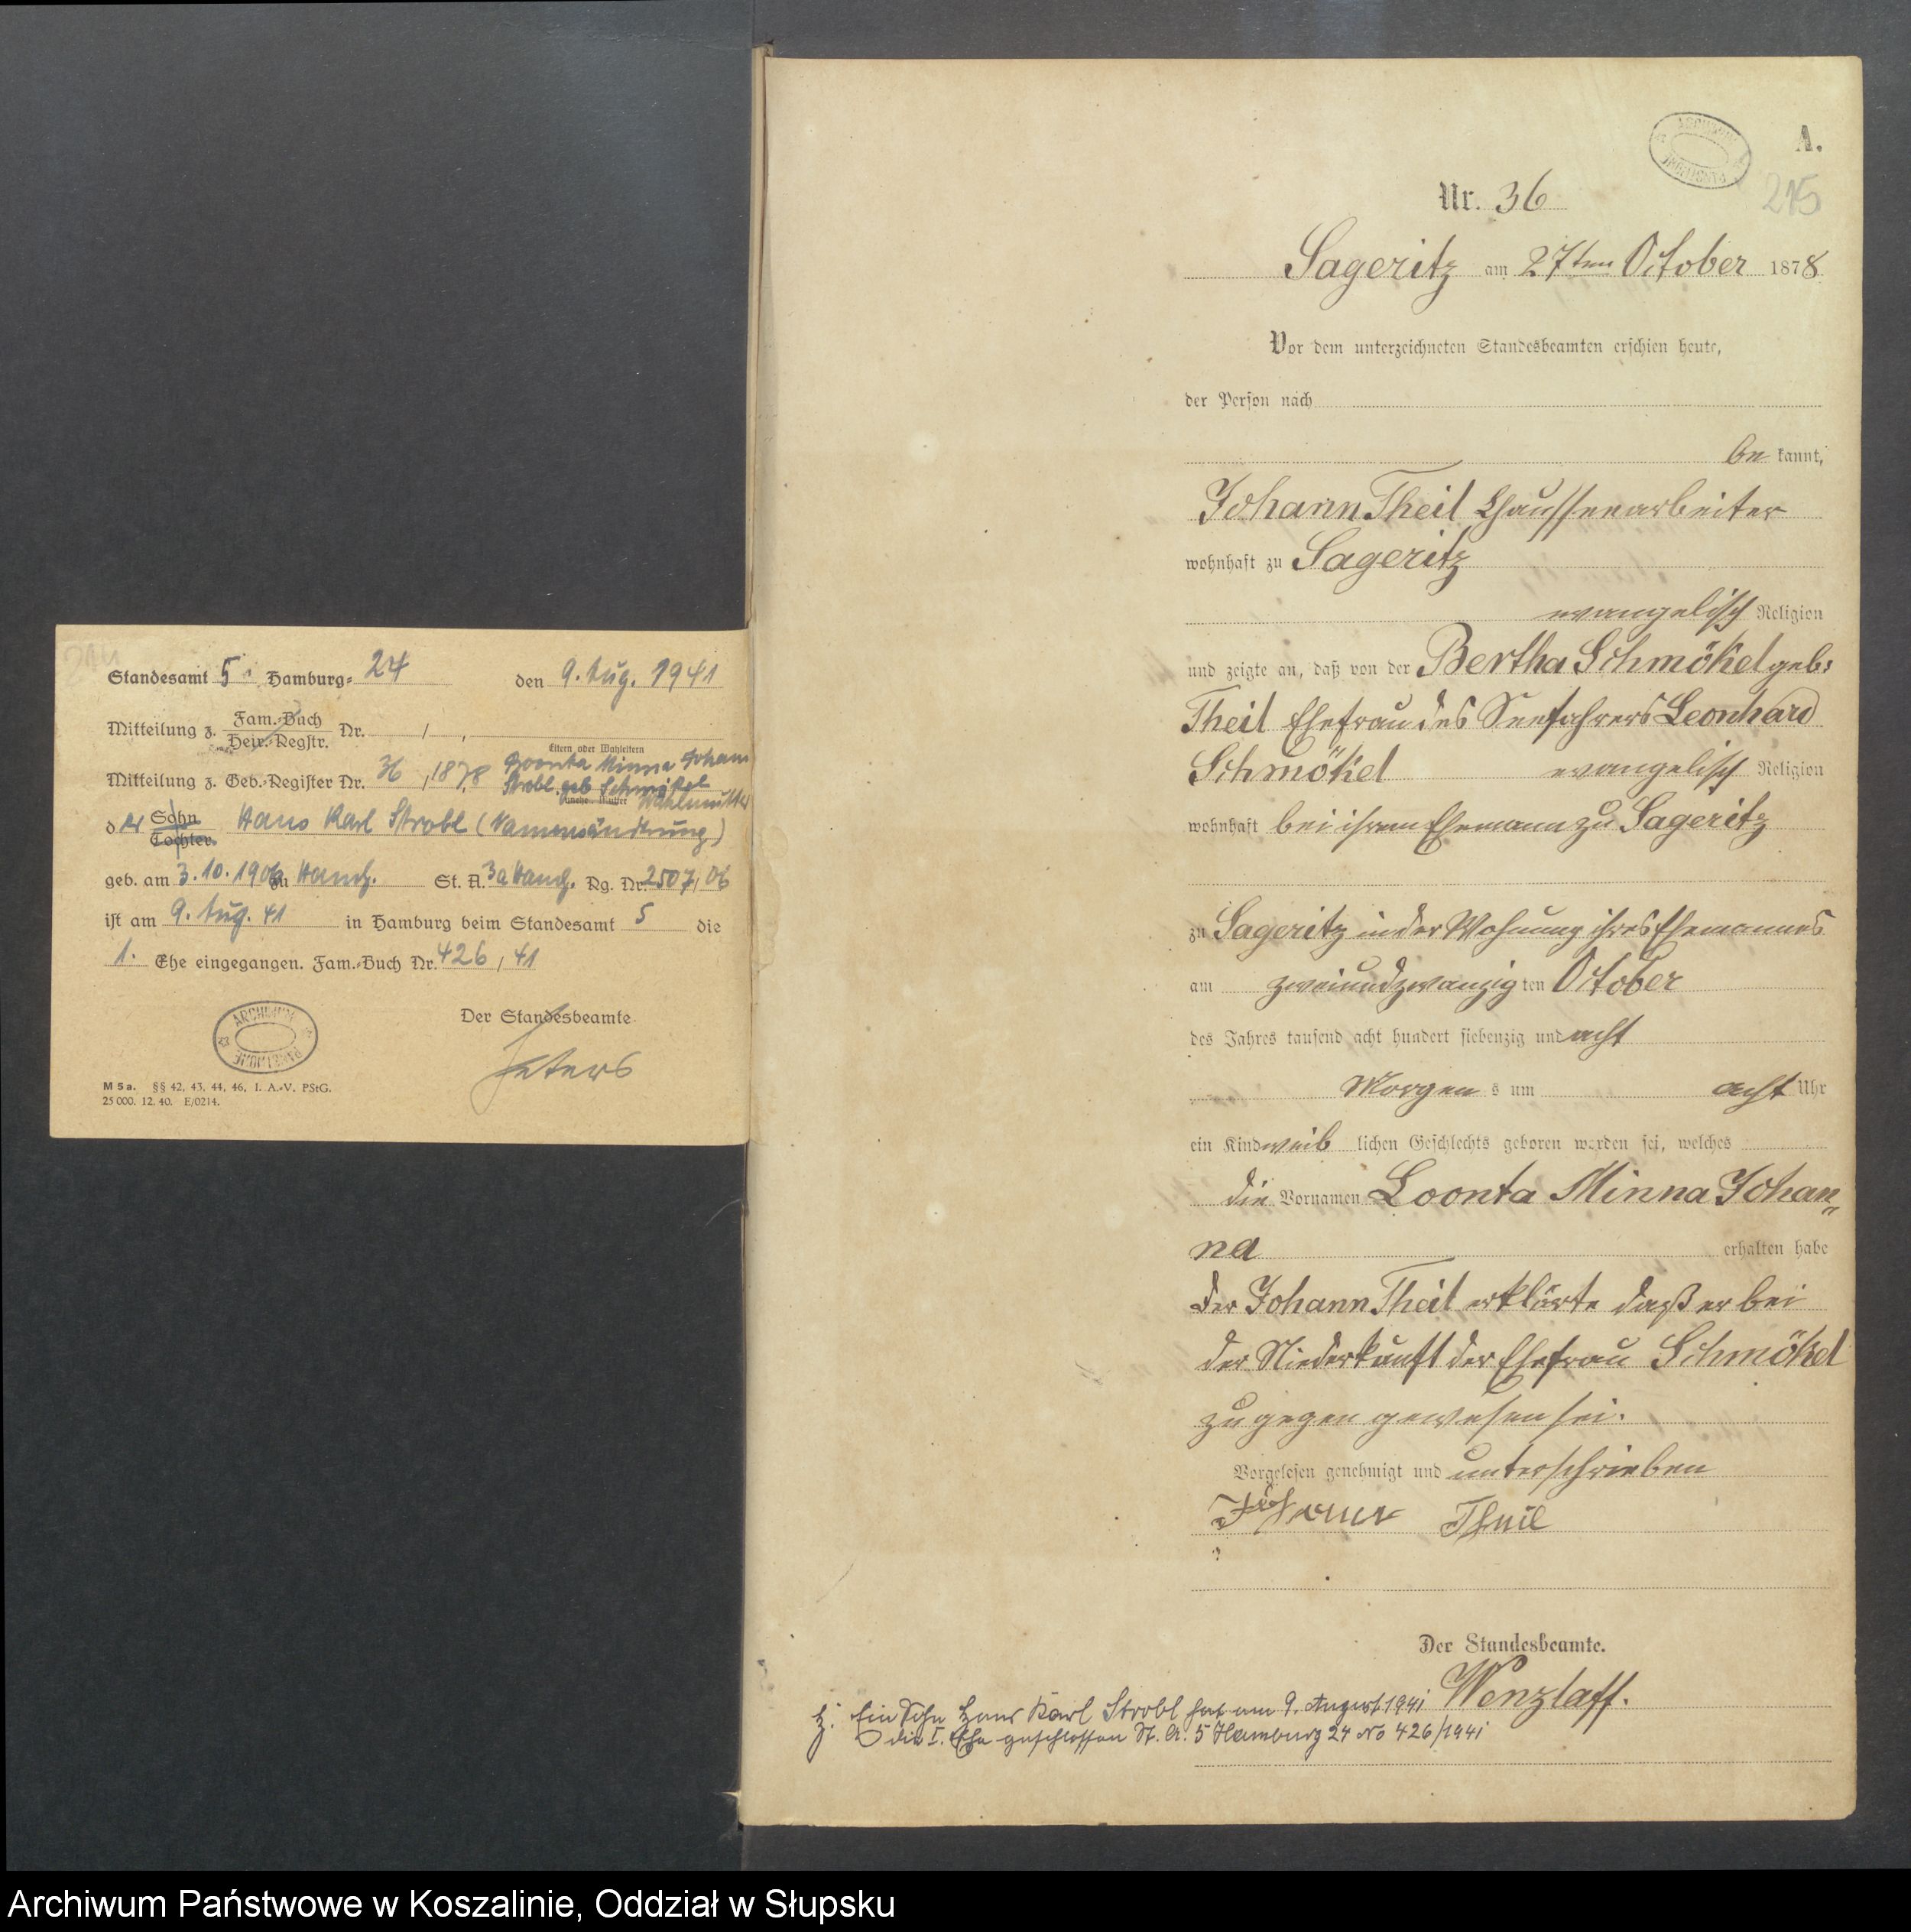 Standesamt 5 Hamburg= 24 den 9. Aug. 1941
Mitteilung z. Fam.=Buch
Heir.=Regstr. Nr. / ,
Eltern oder Wahleltern
Mitteilung z. Geb.=Register Nr. 36 , 1878 Loonta Minna Johann
Strobl geb Schmökel
Wahlmutter
d er Sohn
Tochter Hans Karl Strobl (Namensänderung)
geb. am 3.10.1906 zu Hambg. St. A. 3a Hambg. Rg. Nr. 2507/06
ist am 9. Aug. 41 in Hamburg beim Standesamt 5 die
1. Ehe eingegangen. Fam.=Buch Nr. 426 / 41
ARCHIWUM PAŃSTWOWE
Der Standesbeamte
M 5 a. §§ 42, 43, 44, 46, I. A.-V. PStG.
25 000. 12. 40. E/0214.
ARCHIWUM PAŃSTWOWE
A.
215
Nr. 36
Sageritz am 27ten October 1878
Vor dem unterzeichneten Standesbeamten erschien heute,
der Person nach
be kannt,
Johann Theil Chausseearbeiter
wohnhaft zu Sageritz
evangelisch Religion
und zeigte an, daß von der Bertha Schmökel geb:
Theil Ehefrau des Seefahrers Leonhard
Schmökel evangelisch Religion
wohnhaft bei ihrem Ehemann zu Sageritz
zu Sageritz in der Wohnung ihres Ehemannes
am zweiundzwanzig ten October
des Jahres tausend acht hundert siebenzig und acht
Morgen s um acht Uhr
ein Kind weib lichen Geschlechts geboren worden sei, welches
die Vornamen Loonta Minna Johan„
na erhalten habe
der Johann Theil erklärte daß er bei
der Niederkunft der Ehefrau Schmökel
zugegen gewesen sei.
Vorgelesen genehmigt und unterschrieben
Johann Theil
Der Standesbeamte.
Wenzlaff.
Ein Sohn Hans Karl Strobl hat am 9. August 1941
die I. Ehe geschlossen St. A. 5 Hamburg 24 No 426/1941
Archiwum Państwowe w Koszalinie, Oddział w Słupsku